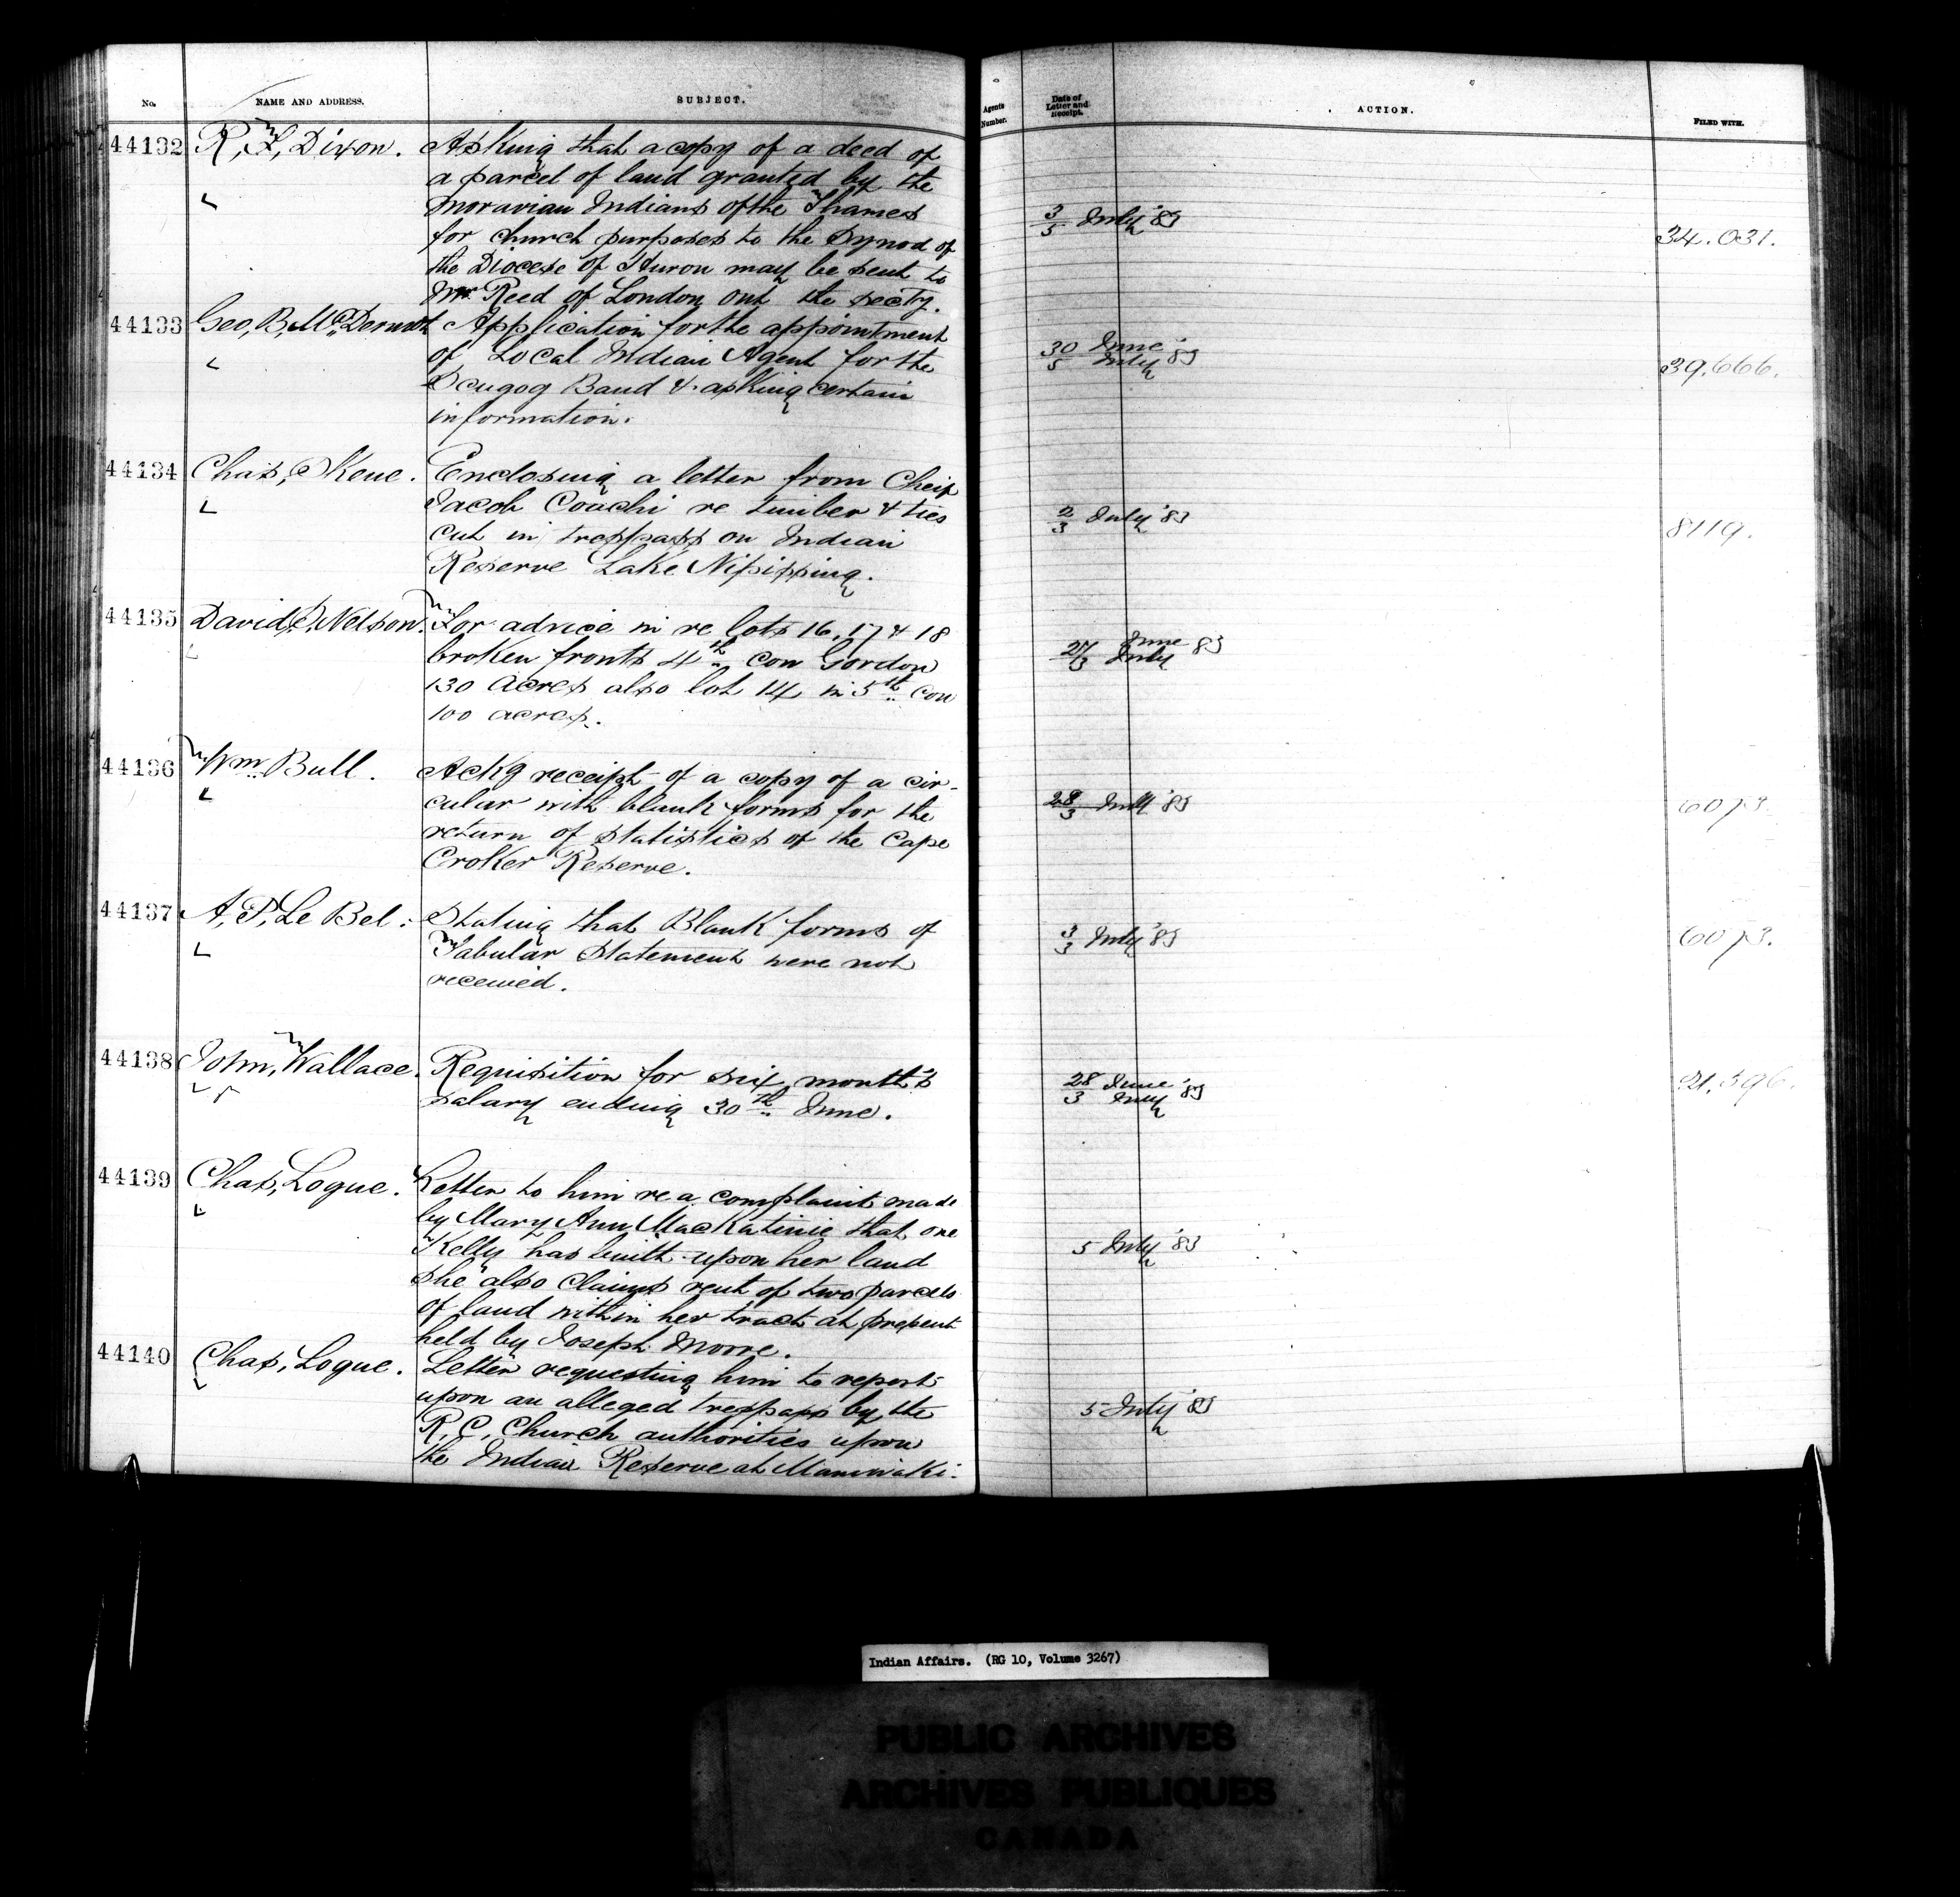 No. NAME AND ADDRESS. SUBJECT. Agents Number. Date of Letter and Receipt. ACTION. FILED WITH.
44132 R, F, Dixon. Asking that a copy of a deed of
a parcel of land granted by the
Moravian Indians of the Thames
for church purposes to the Synod of
the Diocese of Huron may be sent to
Mr Reed of London Ont the Secty.
3/5 July '83 34.031.
44133 Geo, B, McDermott Application for the appointment
of Local Indian Agent for the
Scugog Band & asking certain
information.
30/5 June July '83 39,666.
44134 Chas, Skene. Enclosing a letter from Cheif
Jacob Coachi re timber & ties
cut in tresspass on Indian
Reserve Lake Nipissing.
2/3 July '83 8119.
44135 David, S, Nelson. For advice in re lots 16, 17 & 18
broken fronts 4th con Gordon
130 acres also lot 14 in 5th con
100 acres.
27/3 June July 83
44136 Wm Bull. Ackg receipt of a copy of a cir-
cular with blank forms for the
return of statistics of the Cape
Croker Reserve.
July '83 6073.
44137 A, P, Le Bel. Stating that Blank forms of
Tabular Statement were not
received.
3/3 July '83 6073.
44138 John, Wallace. Requisition for six month's
salary ending 30th June.
28/3 June July '83 21,596.
44139 Chas, Logue. Letter to him re a complaint made
by Mary Ann MacKatinie that one
Kelly has built upon her land
she also claims rent of two parcels
of land within her tract at present
held by Joseph Moore.
5 July '83
44140 Chas, Logue. Letter requesting him to report
upon an alleged tresspass by the
R, C, Church authorities upon
the Indian Reserve at Maniwaki.
5 July '83
Indian Affairs. (RG 10, Volume 3267)
PUBLIC ARCHIVES
ARCHIVES PUBLIQUES
CANADA